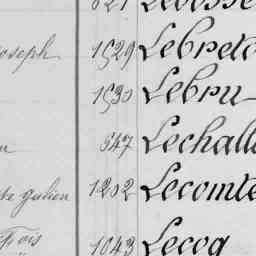 821
oseph 1529 Lebreto
1530 Lebru
847 Lechall
te Julien 1202 Lecomte
Fois 1043 Lecoq